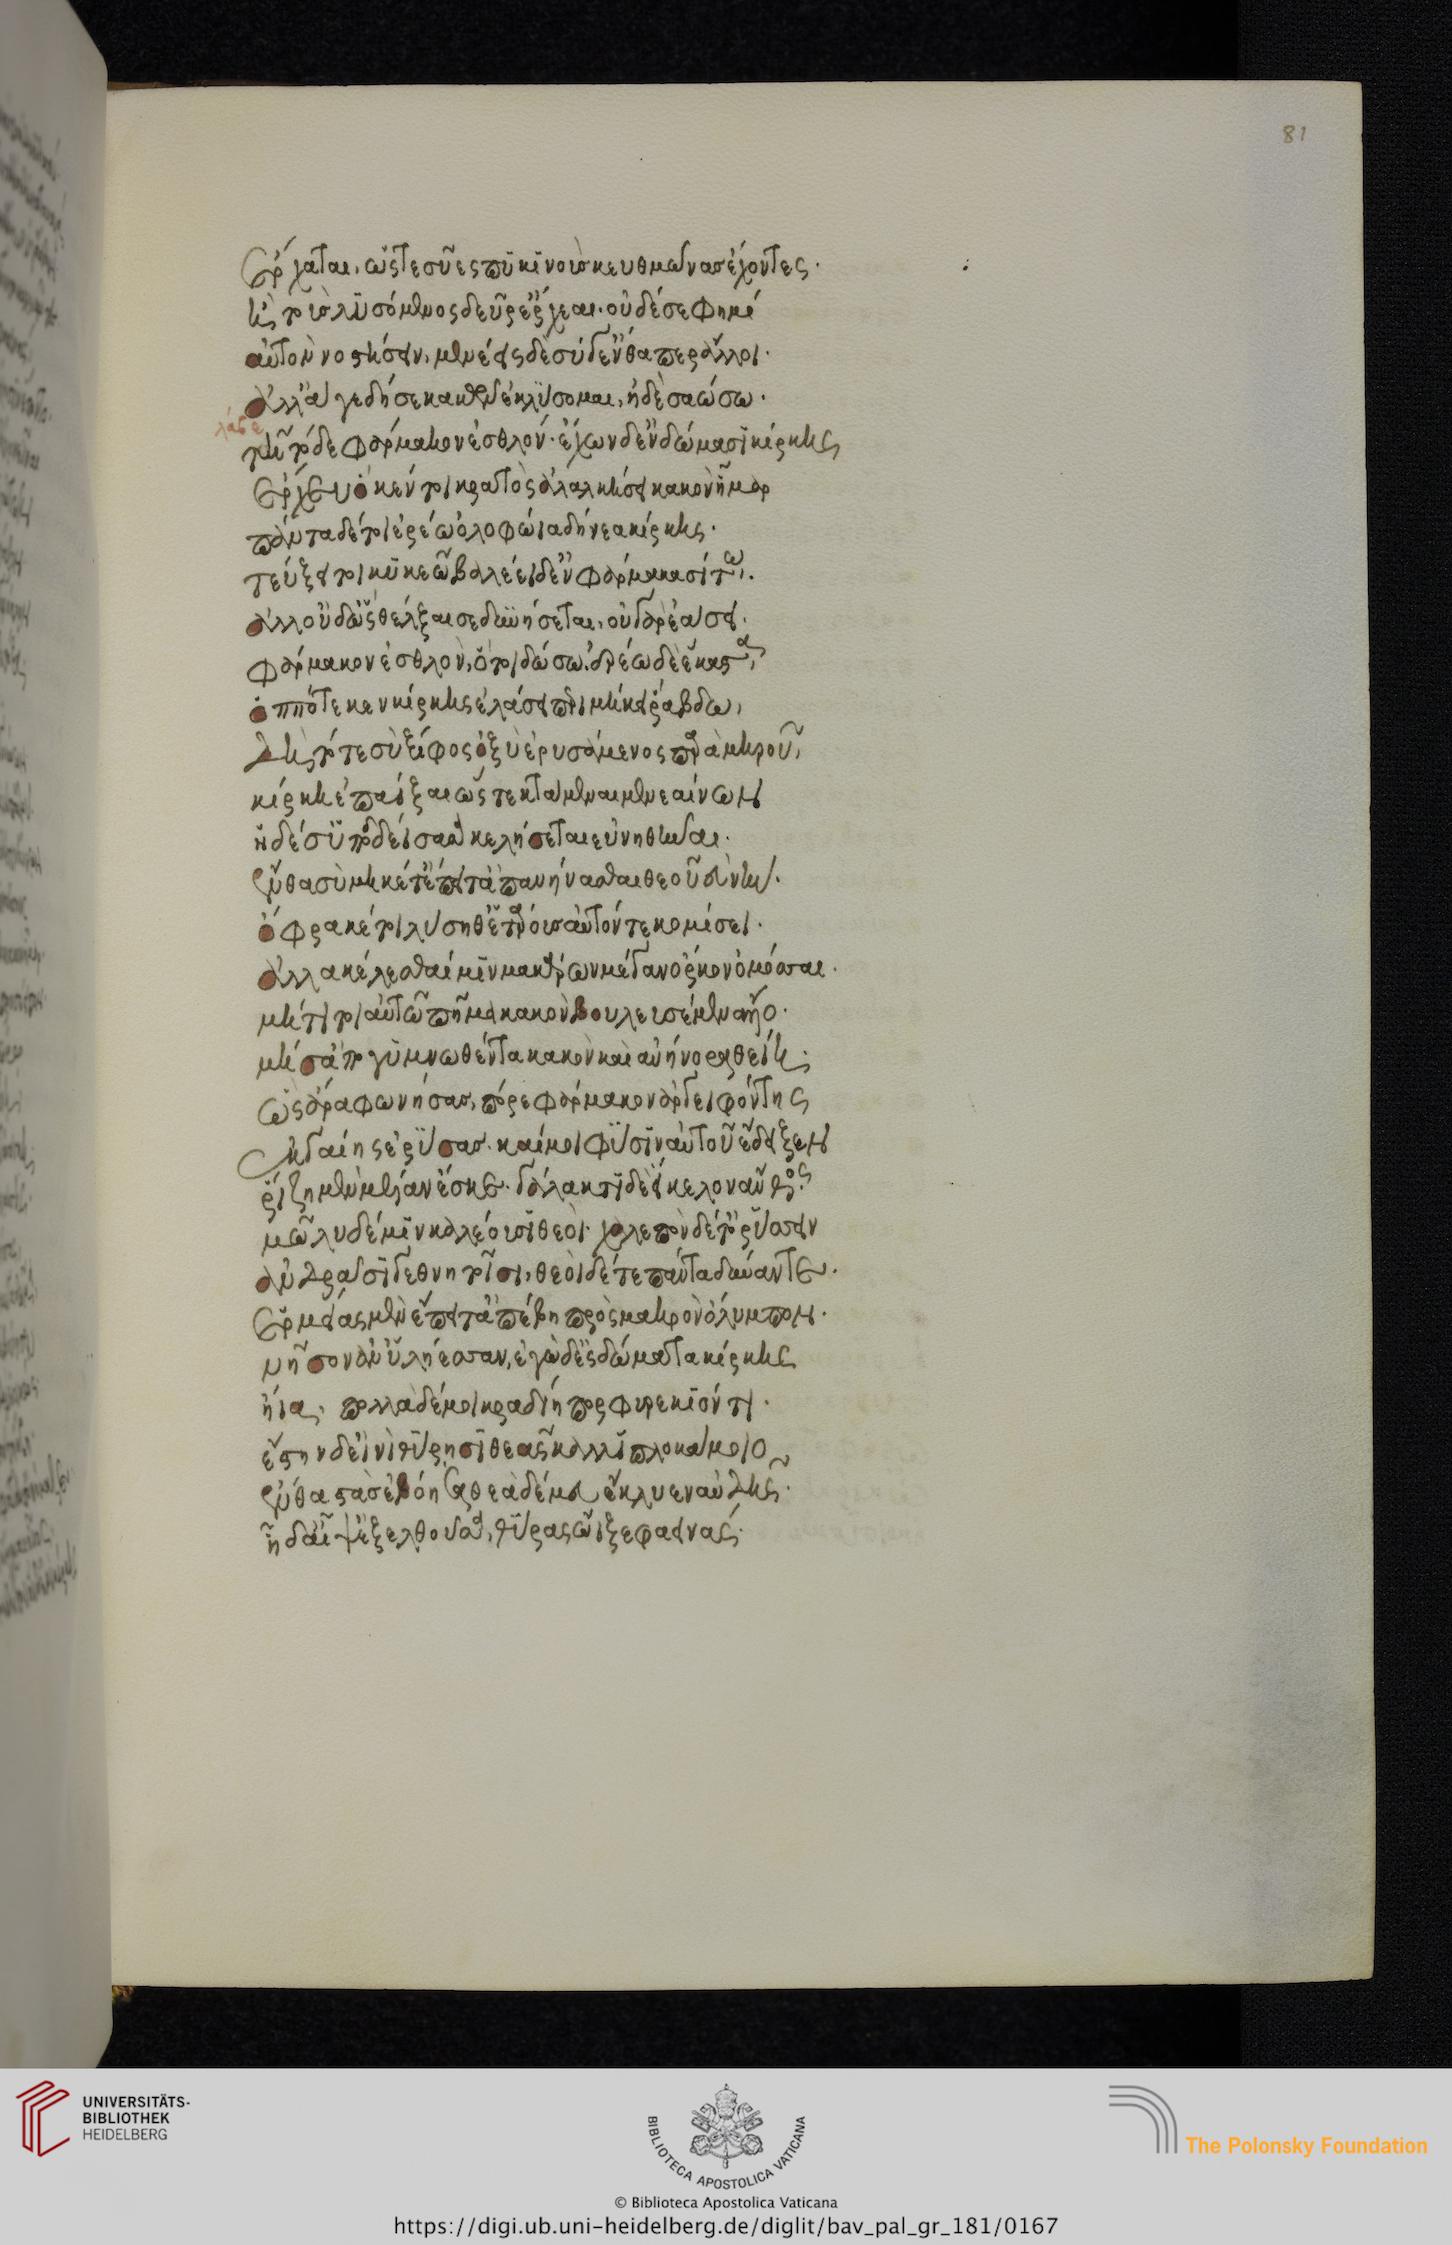 81
ἔρχαται, ὥςτε σῦες πυκινοὺς κευθμῶνας ἔχοντες.
ἦ τοὺς λυσόμενος δεῦρ' ἔρχεαι. οὐδέ σέ φημί
αὐτὸν νοστήσειν, μενέεις δὲ σύ γ' ἔνθα περ ἄλλοι.
ἀλλ' ἄγε δή σε κακῶν ἐκλύσομαι, ἠδὲ σαώσω.
λάβε
τῆ τόδε φάρμακον ἐσθλόν. ἔχων δ' ἐν δώμασι κίρκης
ἔρχευ ὅ κέν τοι κρατὸς ἀλάλκησι κακὸν ἦμαρ
πάντα δέ τοι ἐρέω ὀλοφώια δήνεα κίρκης.
τεύξει τοι κυκεῶ βαλέει δ' ἐν φάρμακα σίτω.
ἀλλ' οὐδ' ὣς θέλξαι σε δυνήσεται, οὐ γὰρ ἐάσει.
φάρμακον ἐσθλὸν, ὅ τοι δώσω. ἐρέω δὲ ἕκαστα,
ὁππότε κεν κίρκης ἐλάσει περιμήκει ῥάβδω,
δὴ τότε σὺ ξίφος ὀξὺ ἐρυσάμενος παρὰ μηροῦ,
κίρκη ἐπαΐξαι ὥς τε κτάμεναι μενεαίνων
ἡ δέ σ' ὑποδείσασα κελήσεται εὐνηθῆναι.
ἔνθα σὺ μηκέτ' ἔπειτ' ἀπανήνασθαι θεοῦ εὐνήν.
ὄφρα κέ τοι λύση θ' ἑτάρους αὐτόν τε κομίσει.
ἀλλὰ κέλεσθαί μιν μακάρων μέγαν ὅρκον ὀμόσσαι.
μή τι τοι αὐτῶ πῆμα κακὸν βουλευσέμεν ἄλλο.
μή σ' ἀπογυμνωθέντα κακὸν καὶ ἀνήνορα θείη.
ὣς ἄρα φωνήσας, πόρε φάρμακον ἀργειφόντης
ἐκ γαίης ἐρύσας. καί μοι φύσιν αὐτοῦ ἔδειξεν
ῥίζη μὲν μέλαν ἔσκε. γάλακτι δὲ εἴκελον ἄνθος.
μῶλυ δέ μιν καλέουσι θεοὶ. χαλεπὸν δέ τ' ὀρύσσειν
ἀνδράσι γε θνητοῖσι, θεοὶ δέ τε πάντα δύνανται.
ἑρμείας μὲν ἔπειτ' ἀπέβη πρὸς μακρὸν ὄλυμπον.
νῆσον ἀν' ὑλήεσσαν, ἐγὼ δ' ἐς δώματα κίρκης
ἤια, πολλὰ δέ μοι κραδίη πόρφυρε κιόντι.
ἔστην δ' εἰνὶ θύρησι θεᾶς καλλιπλοκάμοιο
ἔνθα στὰς ἐβόησα θεὰ δέ μοι ἔκλυεν αὐδῆς.
ἡ δ' αἶψ' ἐξελθοῦσα, θύρας ὤιξε φαεινάς.
UNIVERSITÄTS-
BIBLIOTHEK
HEIDELBERG
BIBLIOTECA APOSTOLICA VATICANA
The Polonsky Foundation
© Biblioteca Apostolica Vaticana
https://digi.ub.uni-heidelberg.de/diglit/bav_pal_gr_181/0167